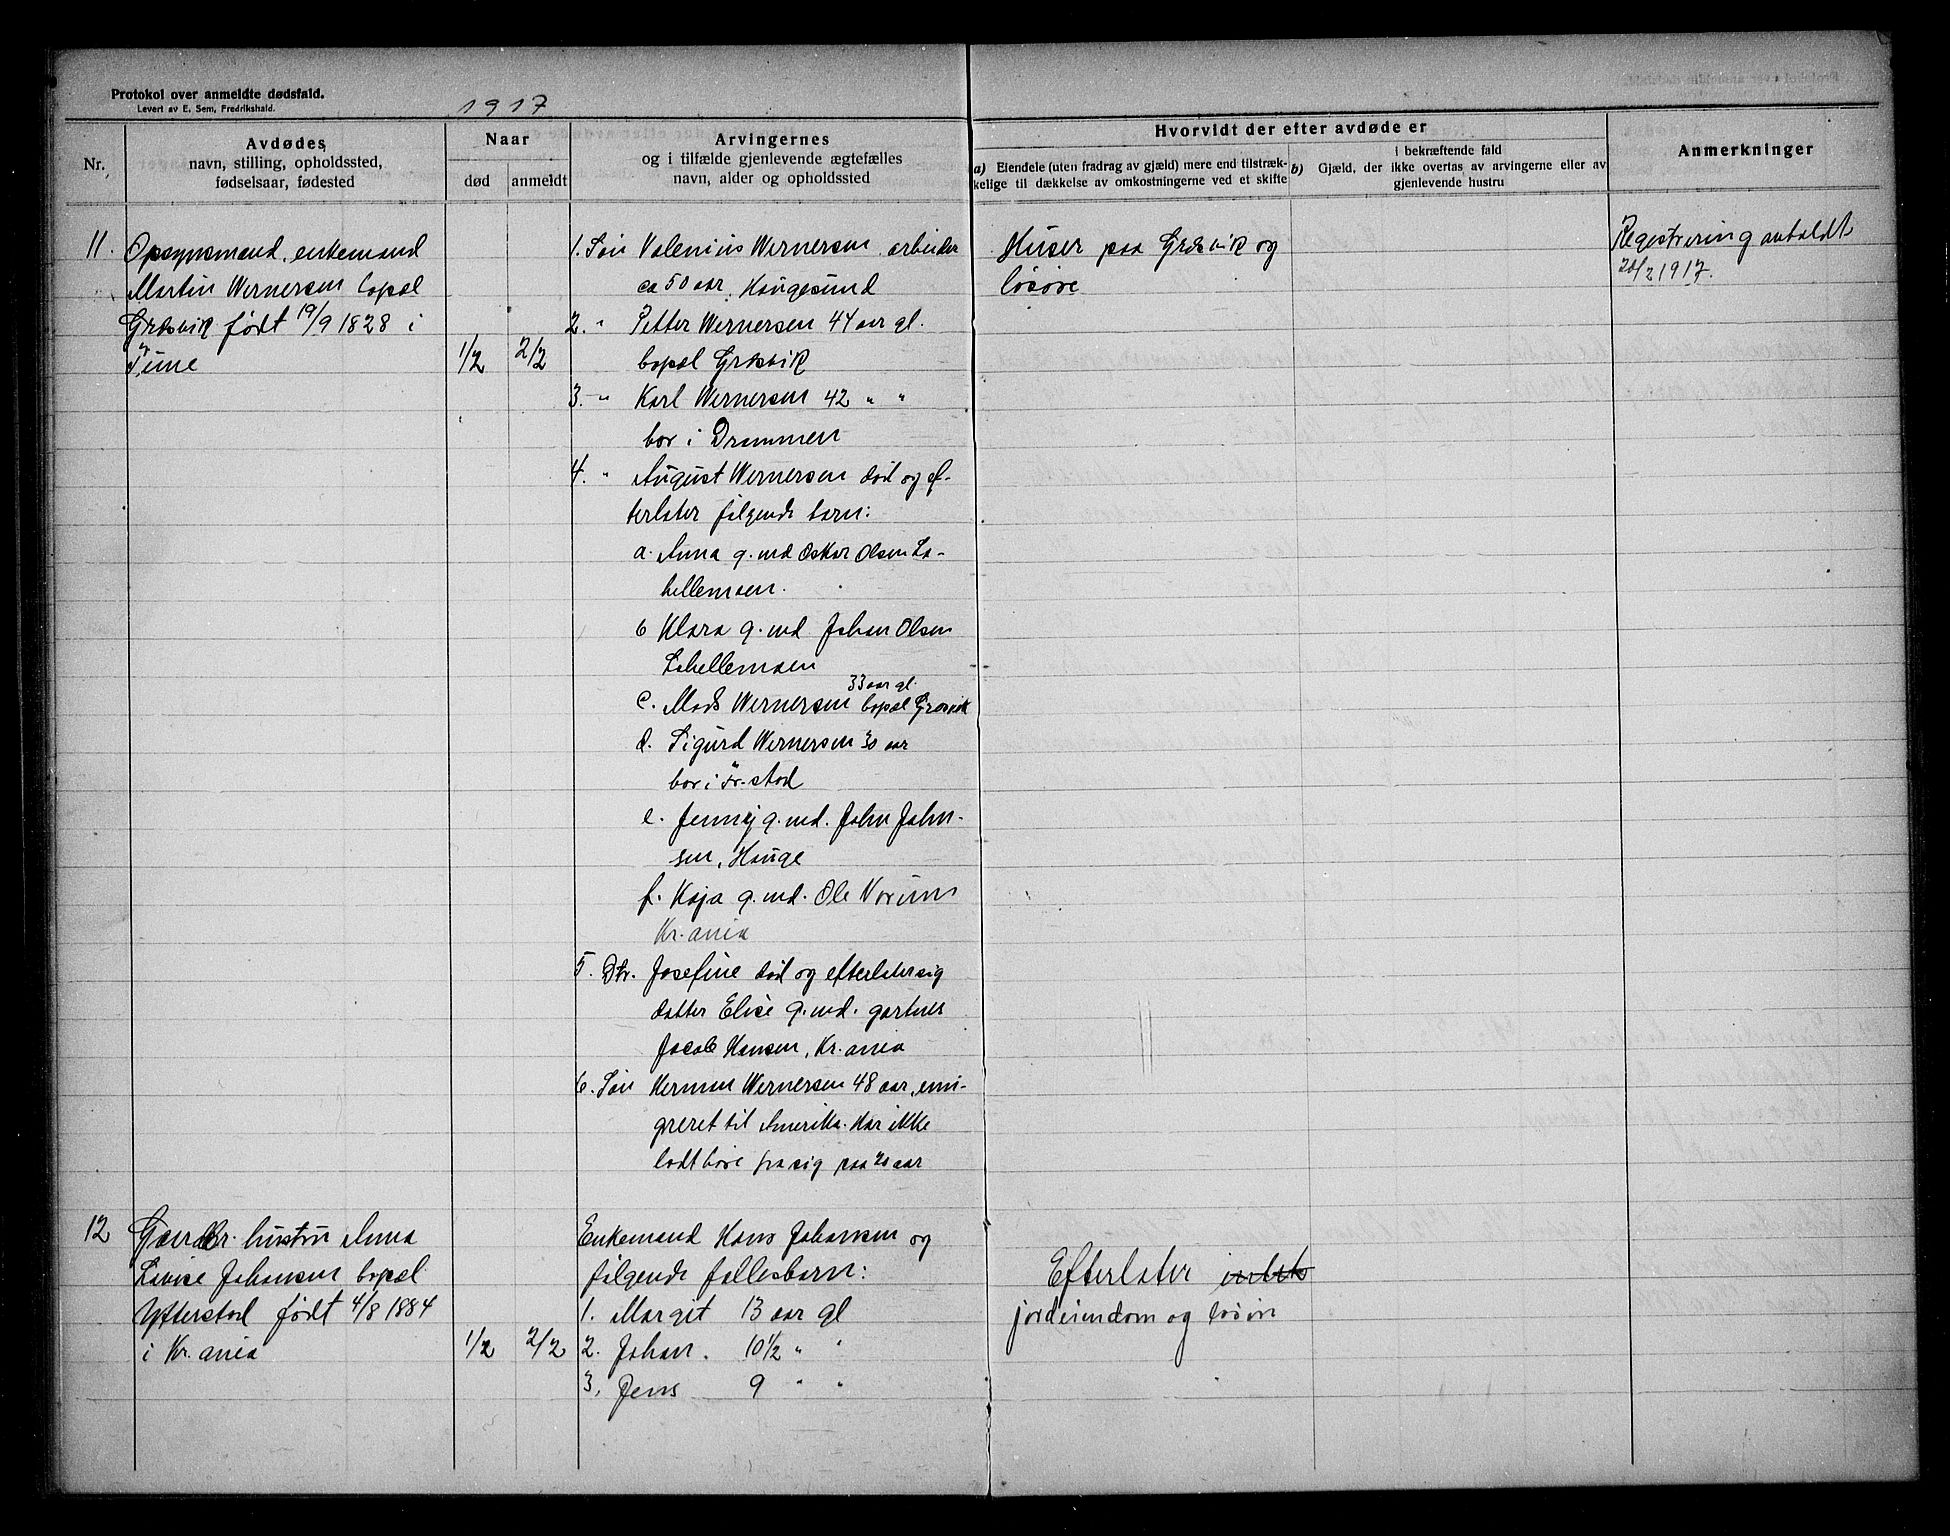 Protokol over anmeldte dødsfald.
Levert av E. Sem, Fredrikshald.
1917
Nr.
Avdødes
navn, stilling, opholdssted,
fødselsaar, fødested
Naar
død
anmeldt
Arvingernes
og i tilfælde gjenlevende ægtefælles
navn, alder og opholdssted
Hvorvidt der efter avdøde er
a) Eiendele (uten fradrag av gjæld) mere end tilstræk-
kelige til dækkelse av omkostningerne ved et skifte
i bekræftende fald
b) Gjæld, der ikke overtas av arvingerne eller av
gjenlevende hustru
Anmerkninger
11.
Opsynsmand, enkemand
Martin Wernersen bopæl
Gresvik født 19/9 1828 i
Tune
1/2
2/2
1. Søn Valenius Wernersen, arbeider
ca 50 aar, Haugesund
2. " Petter Wernersen 44 aar gl.
bopæl Gresvik
3. " Karl Wernersen 42 " "
bor i Drammen
4. " August Wernersen død og ef-
terlater følgende barn:
a. Anna g. md Oskar Olsen La-
hellemoen.
b Klara g. md Johan Olsen
Lahellemoen
33 aar gl.
c. Mads Wernersen bopæl Gresvik
d. Sigurd Wernersen 30 aar
bor i Fr.stad
e. Jenny g. md. John John-
sen, Hauge
f. Kaja g. md. Ole Norum
Kr.ania
5. Dtr. Josefine død og efterlater sig
datter Elise g. md. gartner
Jacob Hansen, Kr.ania
6. Søn Herman Wernersen 48 aar, emi-
greret til Amerika. Har ikke
ladt høre fra sig paa 20 aar
Huser paa Gresvik og
løsøre
Registrering avholdt
20/2 1917.
12
Gaardbr. hustru Anna
Lovise Johansen bopæl
Ytterstad født 4/8 1884
i Kr.ania
1/2
2/2
Enkemand Hans Johansen og
følgende fællesbarn:
1. Margit 13 aar gl
2. Johan. 10 1/2 " "
3. Jens 9 " "
Efterlater
jordeiendom og løsøre